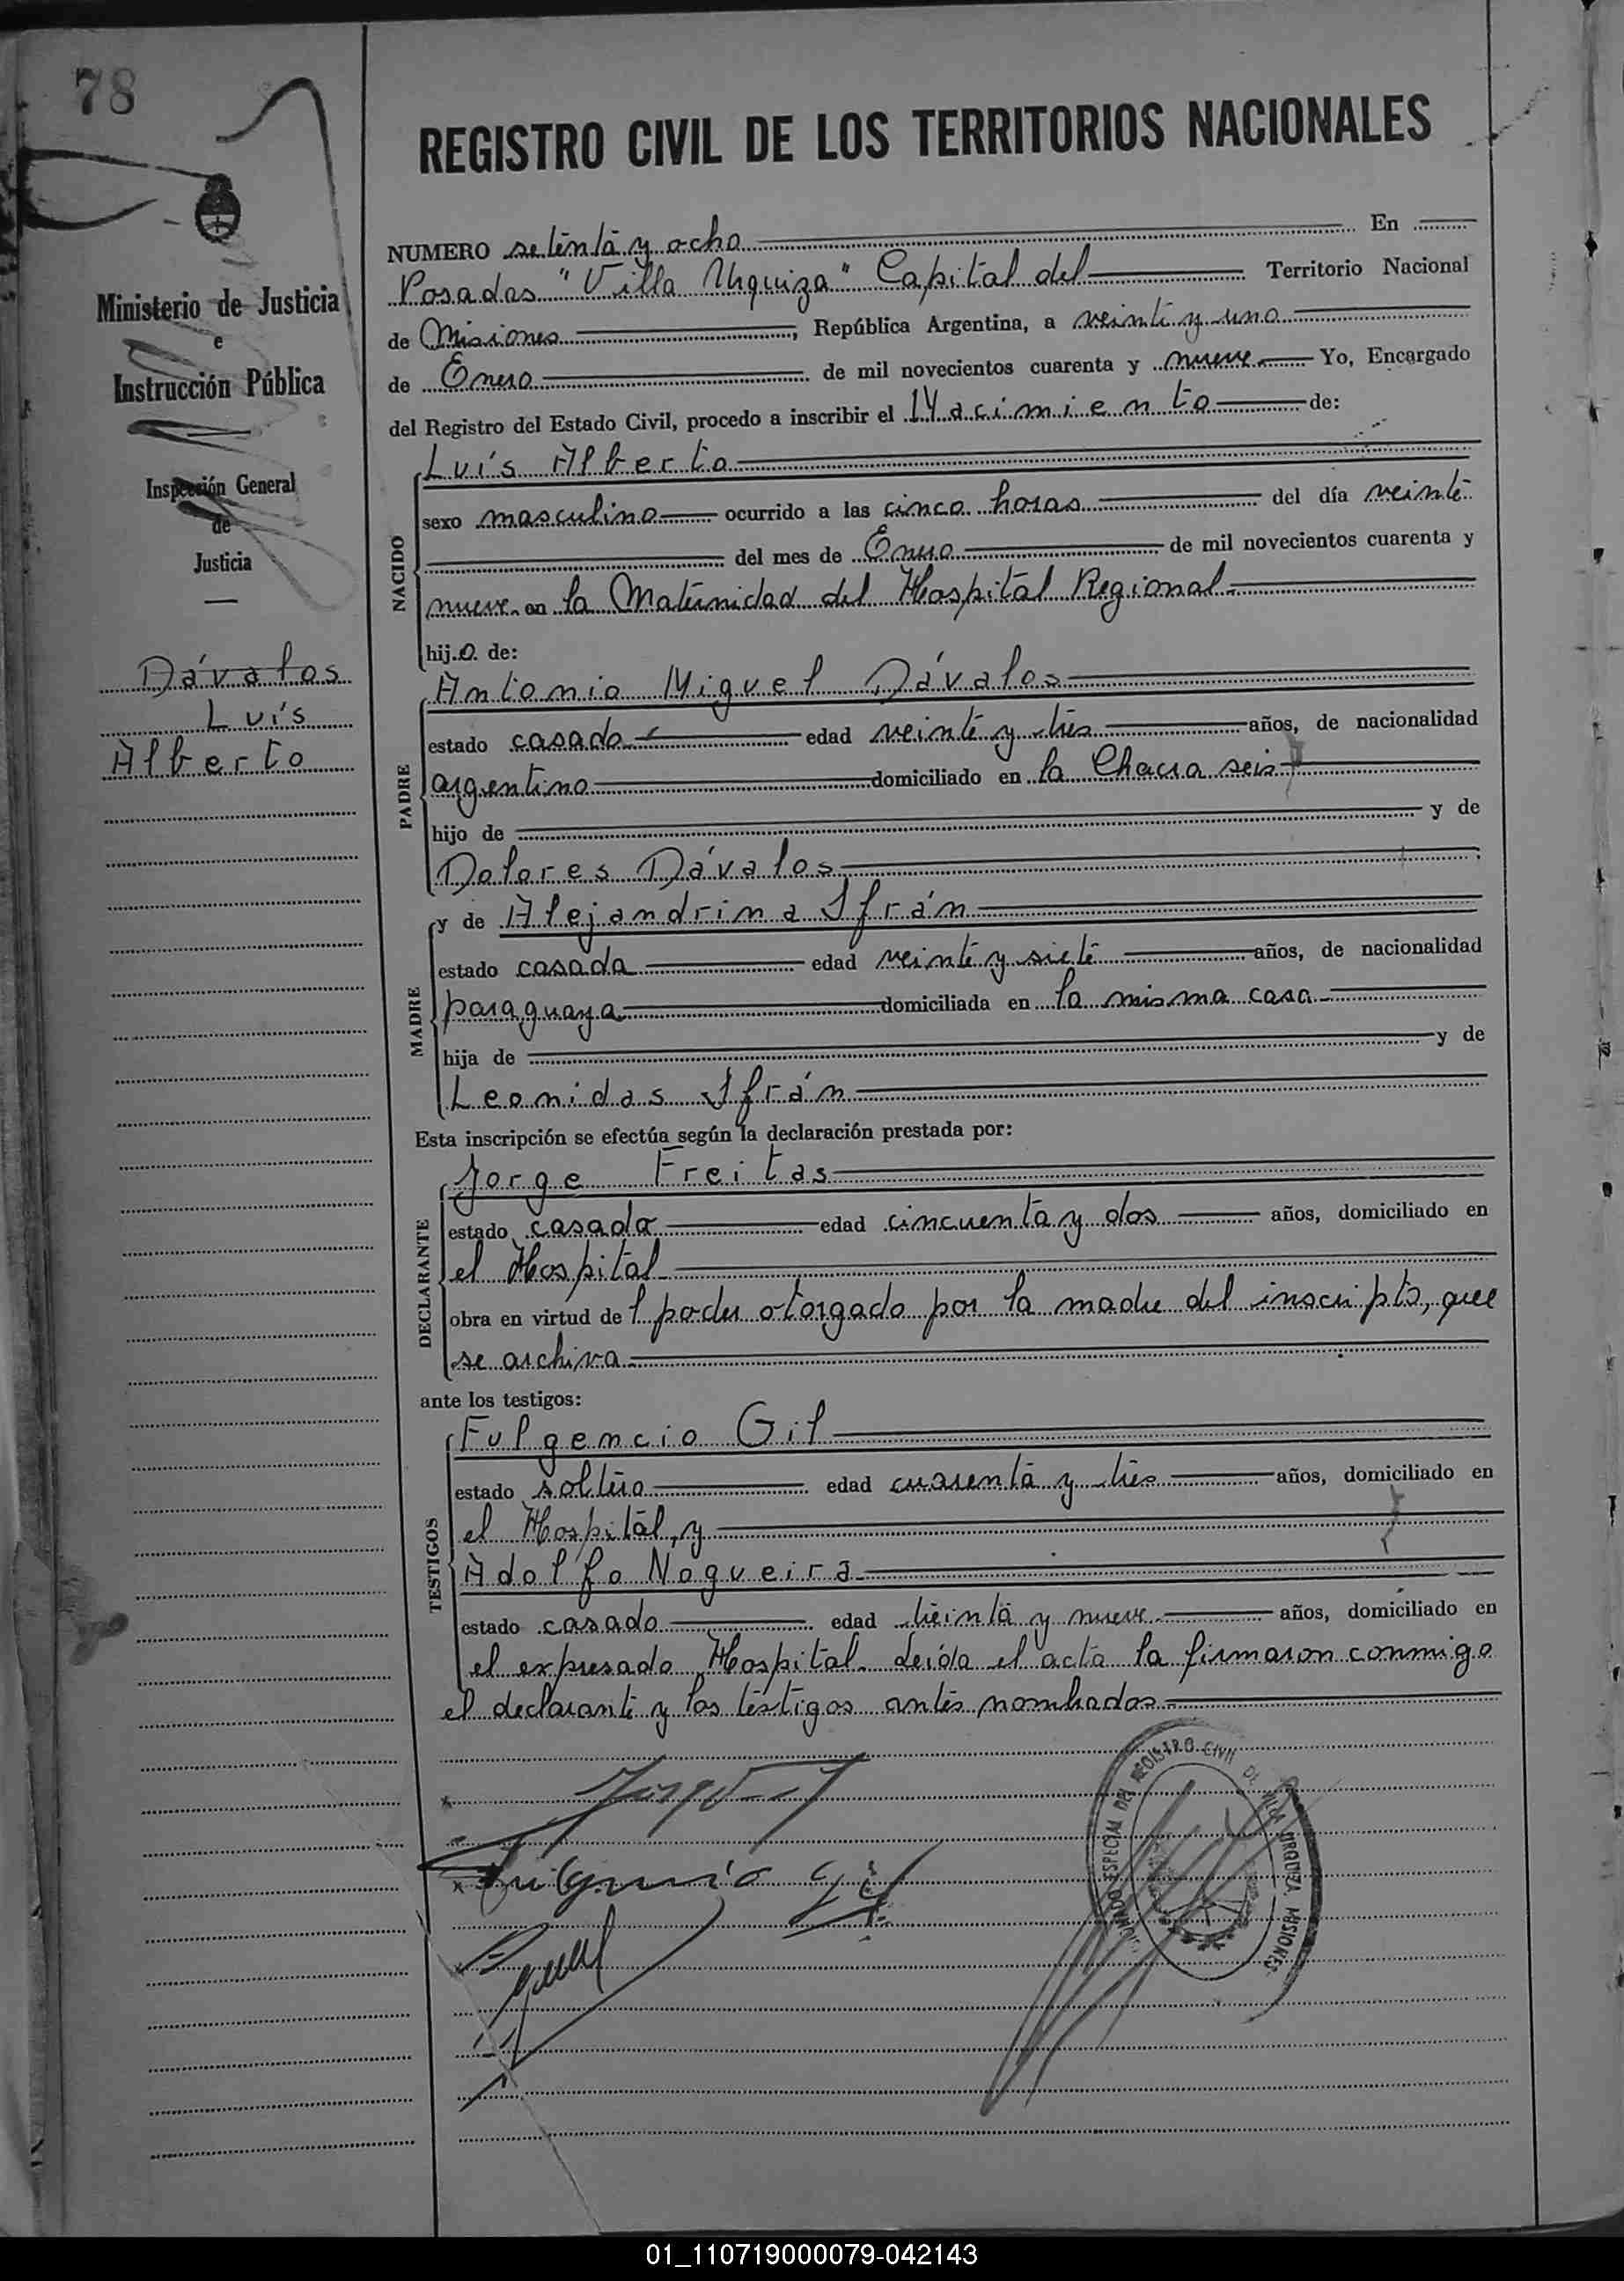 78
REGISTRO CIVIL DE LOS TERRITORIOS NACIONALES
Ministerio de Justicia
e
Instrucción Pública
Inspección General
de
Justicia
Dávalos
Luís
Alberto
NUMERO setenta y ocho En
Posadas "Villa Urquiza" Capital del Territorio Nacional
de Misiones, República Argentina, a veinti y uno
de Enero de mil novecientos cuarenta y nueve Yo, Encargado
del Registro del Estado Civil, procedo a inscribir el Nacimiento de:
NACIDO
Luís Alberto
sexo masculino ocurrido a las cinco horas del día veinte
del mes de Enero de mil novecientos cuarenta y
nueve en la Maternidad del Hospital Regional
hijo de:
PADRE
Antonio Miguel Dávalos
estado casado edad veinte y tres años, de nacionalidad
argentino domiciliado en la Chacra seis
hijo de y de
Dolores Dávalos
MADRE
y de Alejandrina Ifrán
estado casada edad veinte y siete años, de nacionalidad
paraguaya domiciliada en la misma casa
hija de y de
Leonidas Ifrán
Esta inscripción se efectúa según la declaración prestada por:
DECLARANTE
Jorge Freitas
estado casado edad cincuenta y dos años, domiciliado en
el Hospital
obra en virtud del poder otorgado por la madre del inscripto, que
se archiva
ante los testigos:
TESTIGOS
Fulgencio Gil
estado soltero edad cuarenta y tres años, domiciliado en
el Hospital, y
Adolfo Nogueira
estado casado edad treinta y nueve años, domiciliado en
el expresado Hospital. Leída el acta la firmaron conmigo
el declarante y los testigos antes nombrados
Fulgencio Gil
ESPECIAL DEL REGISTRO CIVIL DE VILLA URQUIZA MISIONES
01_110719000079-042143